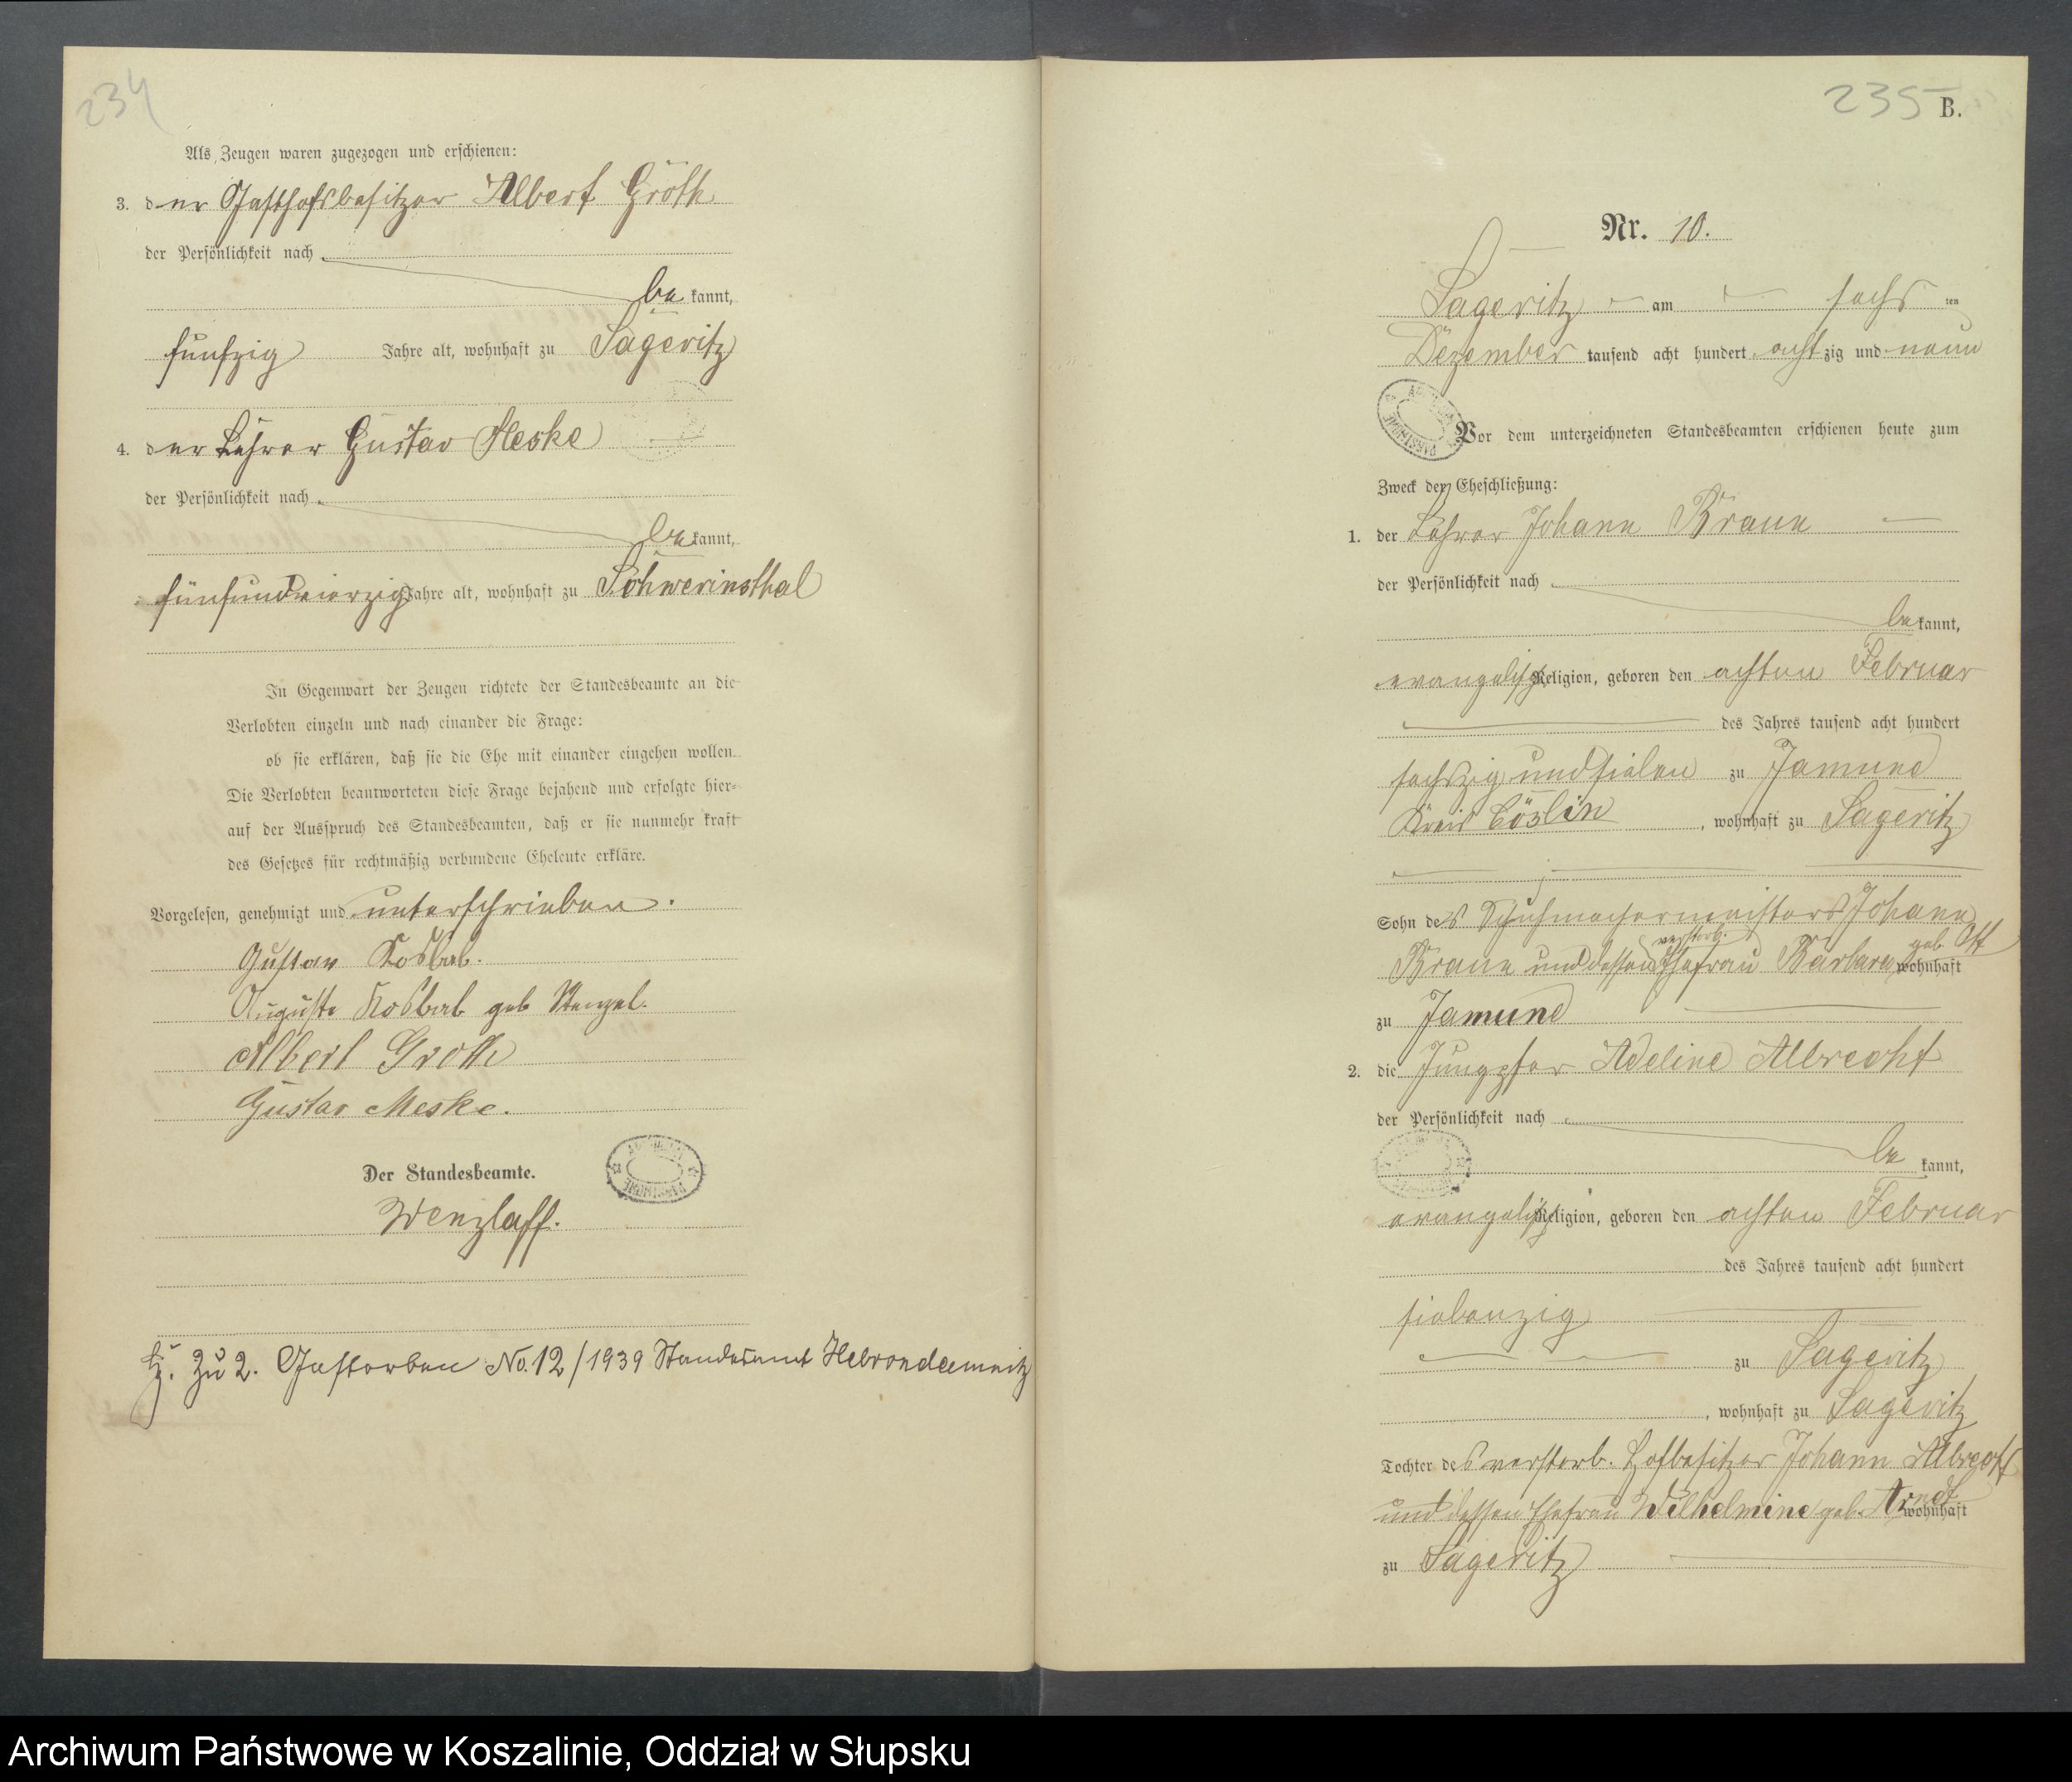 234
Als Zeugen waren zugezogen und erschienen:
3. der Gasthofsbesitzer Albert Groth
der Persönlichkeit nach
be kannt,
funfzig Jahre alt, wohnhaft zu Sageritz
4. der Lehrer Gustav Meske
der Persönlichkeit nach
be kannt,
fünfundvierzig Jahre alt, wohnhaft zu Schwerinsthal
In Gegenwart der Zeugen richtete der Standesbeamte an die
Verlobten einzeln und nach einander die Frage:
ob sie erklären, daß sie die Ehe mit einander eingehen wollen.
Die Verlobten beantworteten diese Frage bejahend und erfolgte hier-
auf der Ausspruch des Standesbeamten, daß er sie nunmehr kraft
des Gesetzes für rechtmäßig verbundene Eheleute erkläre.
Vorgelesen, genehmigt und unterschrieben.
Gustav Kosbab.
Auguste Kosbab geb Stenzel.
Albert Groth
Gustav Meske.
Der Standesbeamte.
Wenzlaff.
Zu 2. Gestorben No. 12/1939 Standesamt Hebrondamnitz
235 B.
Nr. 10.
Sageritz am sechs ten
Dezember tausend acht hundert acht zig und neun
Vor dem unterzeichneten Standesbeamten erschienen heute zum
Zweck der Eheschließung:
1. der Lehrer Johann Braun
der Persönlichkeit nach
be kannt,
evangelisch Religion, geboren den achten Februar
des Jahres tausend acht hundert
sechszig und sieben zu Jamund
Kreis Cöslin, wohnhaft zu Sageritz
Sohn des Schuhmachermeisters Johann
Braun und dessen verstorb. Ehefrau Barbara geb. Ott wohnhaft
zu Jamund
2. die Jungfer Adeline Albrecht
der Persönlichkeit nach
be kannt,
evangelisch Religion, geboren den achten Februar
des Jahres tausend acht hundert
siebenzig
zu Sageritz
, wohnhaft zu Sageritz
Tochter des verstorb. Hofbesitzer Johann Albrecht
und dessen Ehefrau Wilhelmine geb. Arndt wohnhaft
zu Sageritz
Archiwum Państwowe w Koszalinie, Oddział w Słupsku